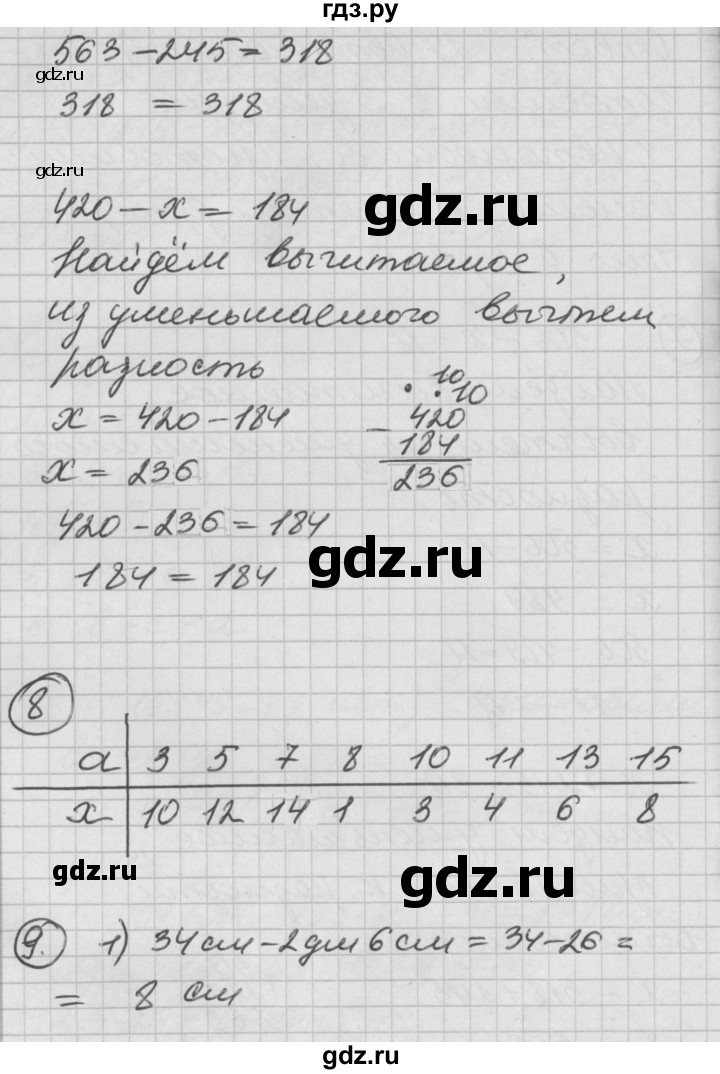 гдз.ру
563 - 245 = 318
gdz.ru
318 = 318
gdz.ru
420 - x = 184
gdz.ru
Найдём вычитаемое,
из уменьшаемого вычтем
разность
10
· ·10
x = 420 - 184
- 420
184
x = 236
236
420 - 236 = 184
184 = 184
gdz.ru
8
a 3 5 7 8 10 11 13 15
x 10 12 14 1 3 4 6 8
gdz.ru
gdz.ru
9. 1) 34 см - 2 дм 6 см = 34 - 26 =
= 8 см
gdz.ru